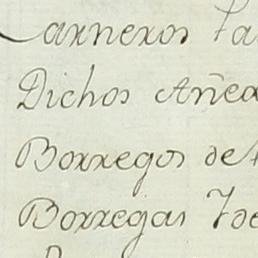 Carneros
Dichos Añe
Borregos de
Borregas Yde